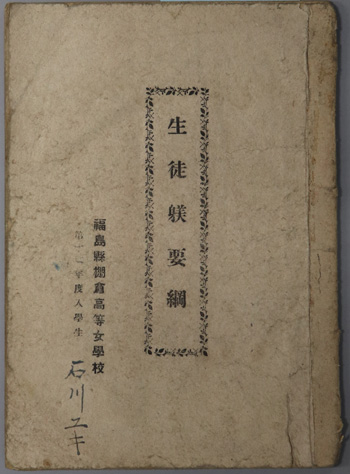 生徒躾要綱
福島縣棚倉高等女學校
第十一年度入學生
石川ユキ